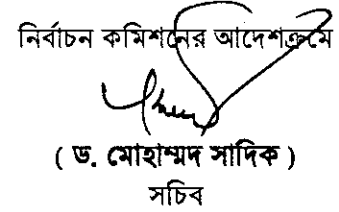 নির্বাচন কমিশনের আদেশক্রমে
( ড. মোহাম্মদ সাদিক )
সচিব